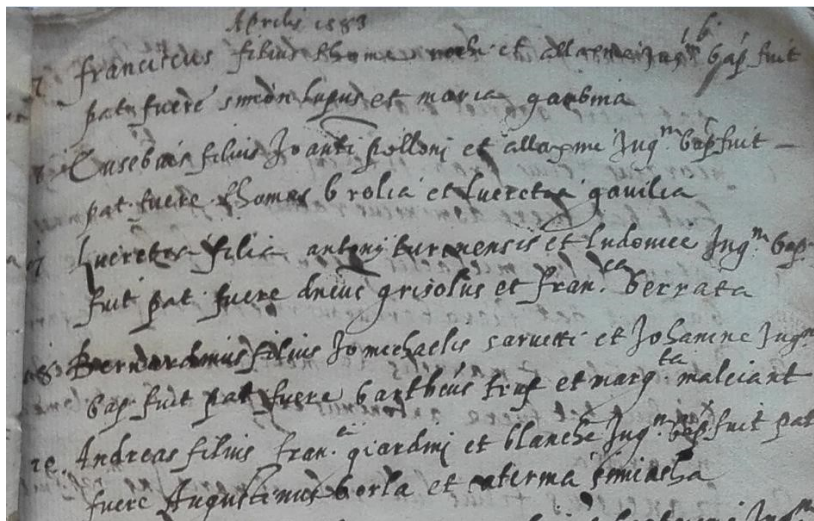 Aprilis 1583
franciscus filius thome rochi et allaxine Jug.m bap. fuit
pat. fuere simon lupus et maria gambina
Eusebius filius Jo anti polloni et allaxine Jug.m bap. fuit
pat. fuere thomas brolia et lucretia gavilia
Lucretia filia antonij turonensis et ludovice Jug.m bap.
fuit pat. fuere dnicus grisolus et fran.ca berrata
Bernardinus filius Jo michaelis sarvetti et Johanine Jug.m
bap. fuit pat. fuere bartheus truf et marg.ta malciant
Andreas filius fran. giardini et blanche Jug.m bap. fuit pat
fuere Augustinus borla et caterina